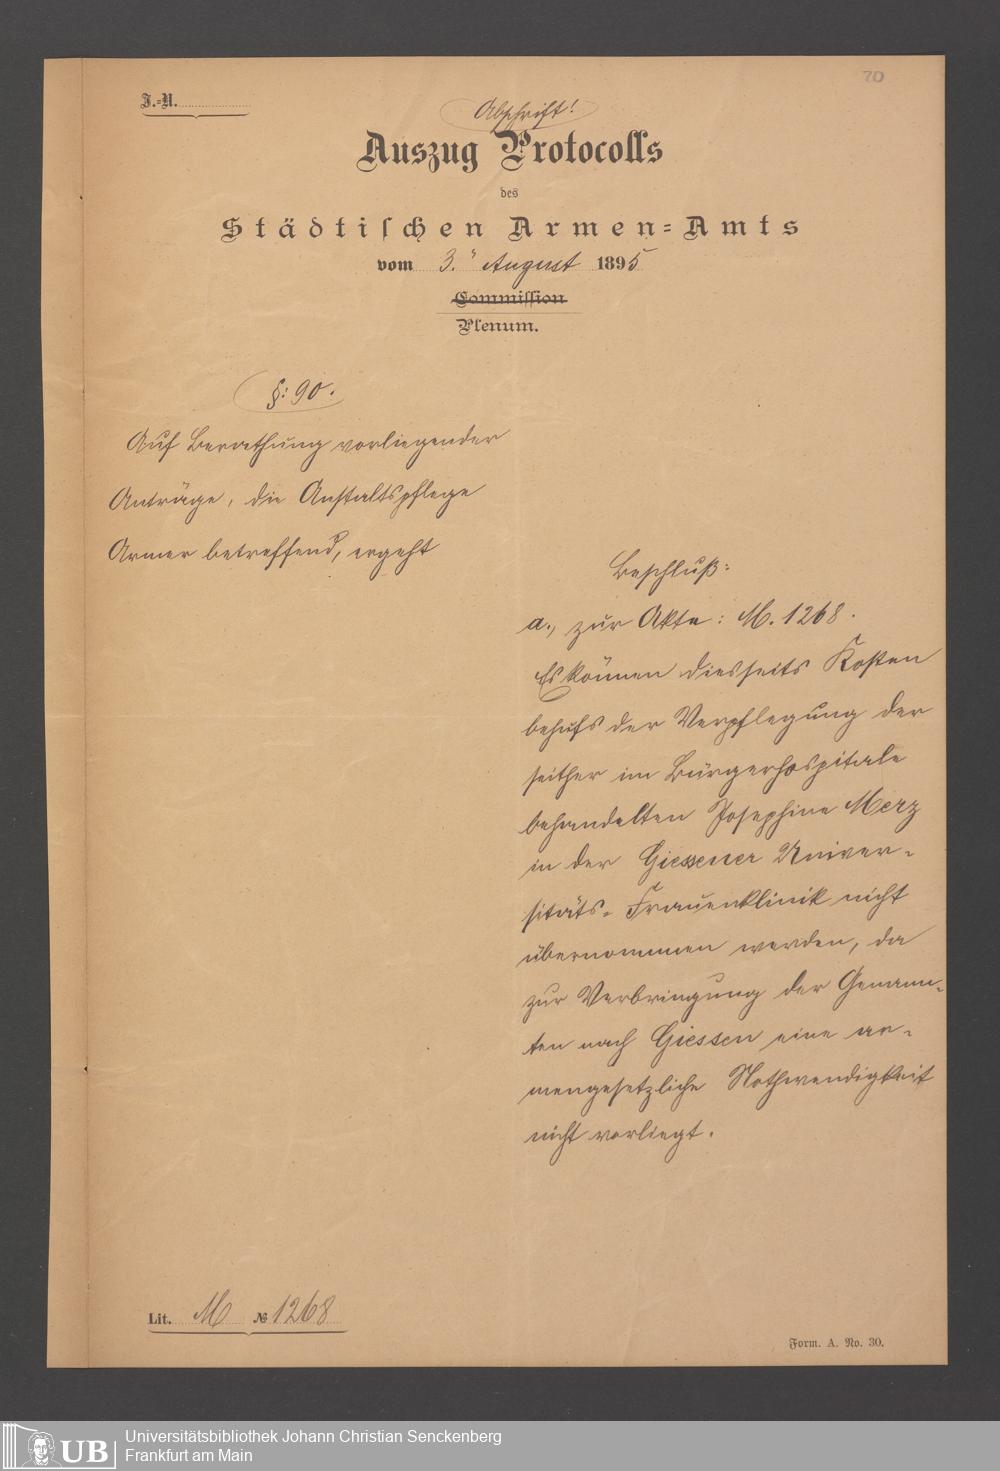 70
J.-N.
Abschrift!
Auszug Protocolls
des
Städtischen Armen-Amts
vom 3.ⁿ August 1895
Commission
Plenum.
§: 90.
Auf Berathung vorliegender
Anträge, die Anstaltspflege
Armer betreffend, ergeht
Beschluß:
a., zur Akte: M. 1268.
Es können diesseits Kosten
behufs der Verpflegung der
seither im Bürgerhospitale
behandelten Josephine Merz
in der Giessener Univer-
sitäts-Frauenklinik nicht
übernommen werden, da
zur Verbringung der Genann-
ten nach Giessen eine ar-
mengesetzliche Nothwendigkeit
nicht vorliegt.
Lit. M № 1268
Form. A. No. 30.
UB
Universitätsbibliothek Johann Christian Senckenberg
Frankfurt am Main